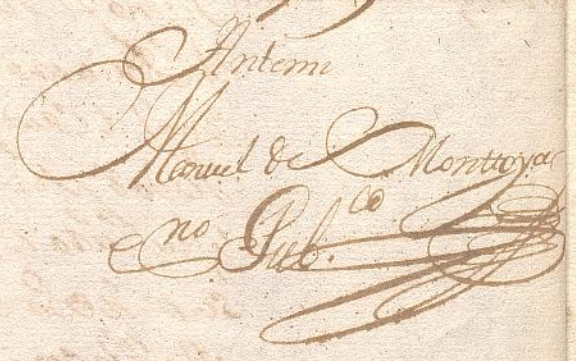 Antemi
Manuel de Monttoya
eno Pub.co